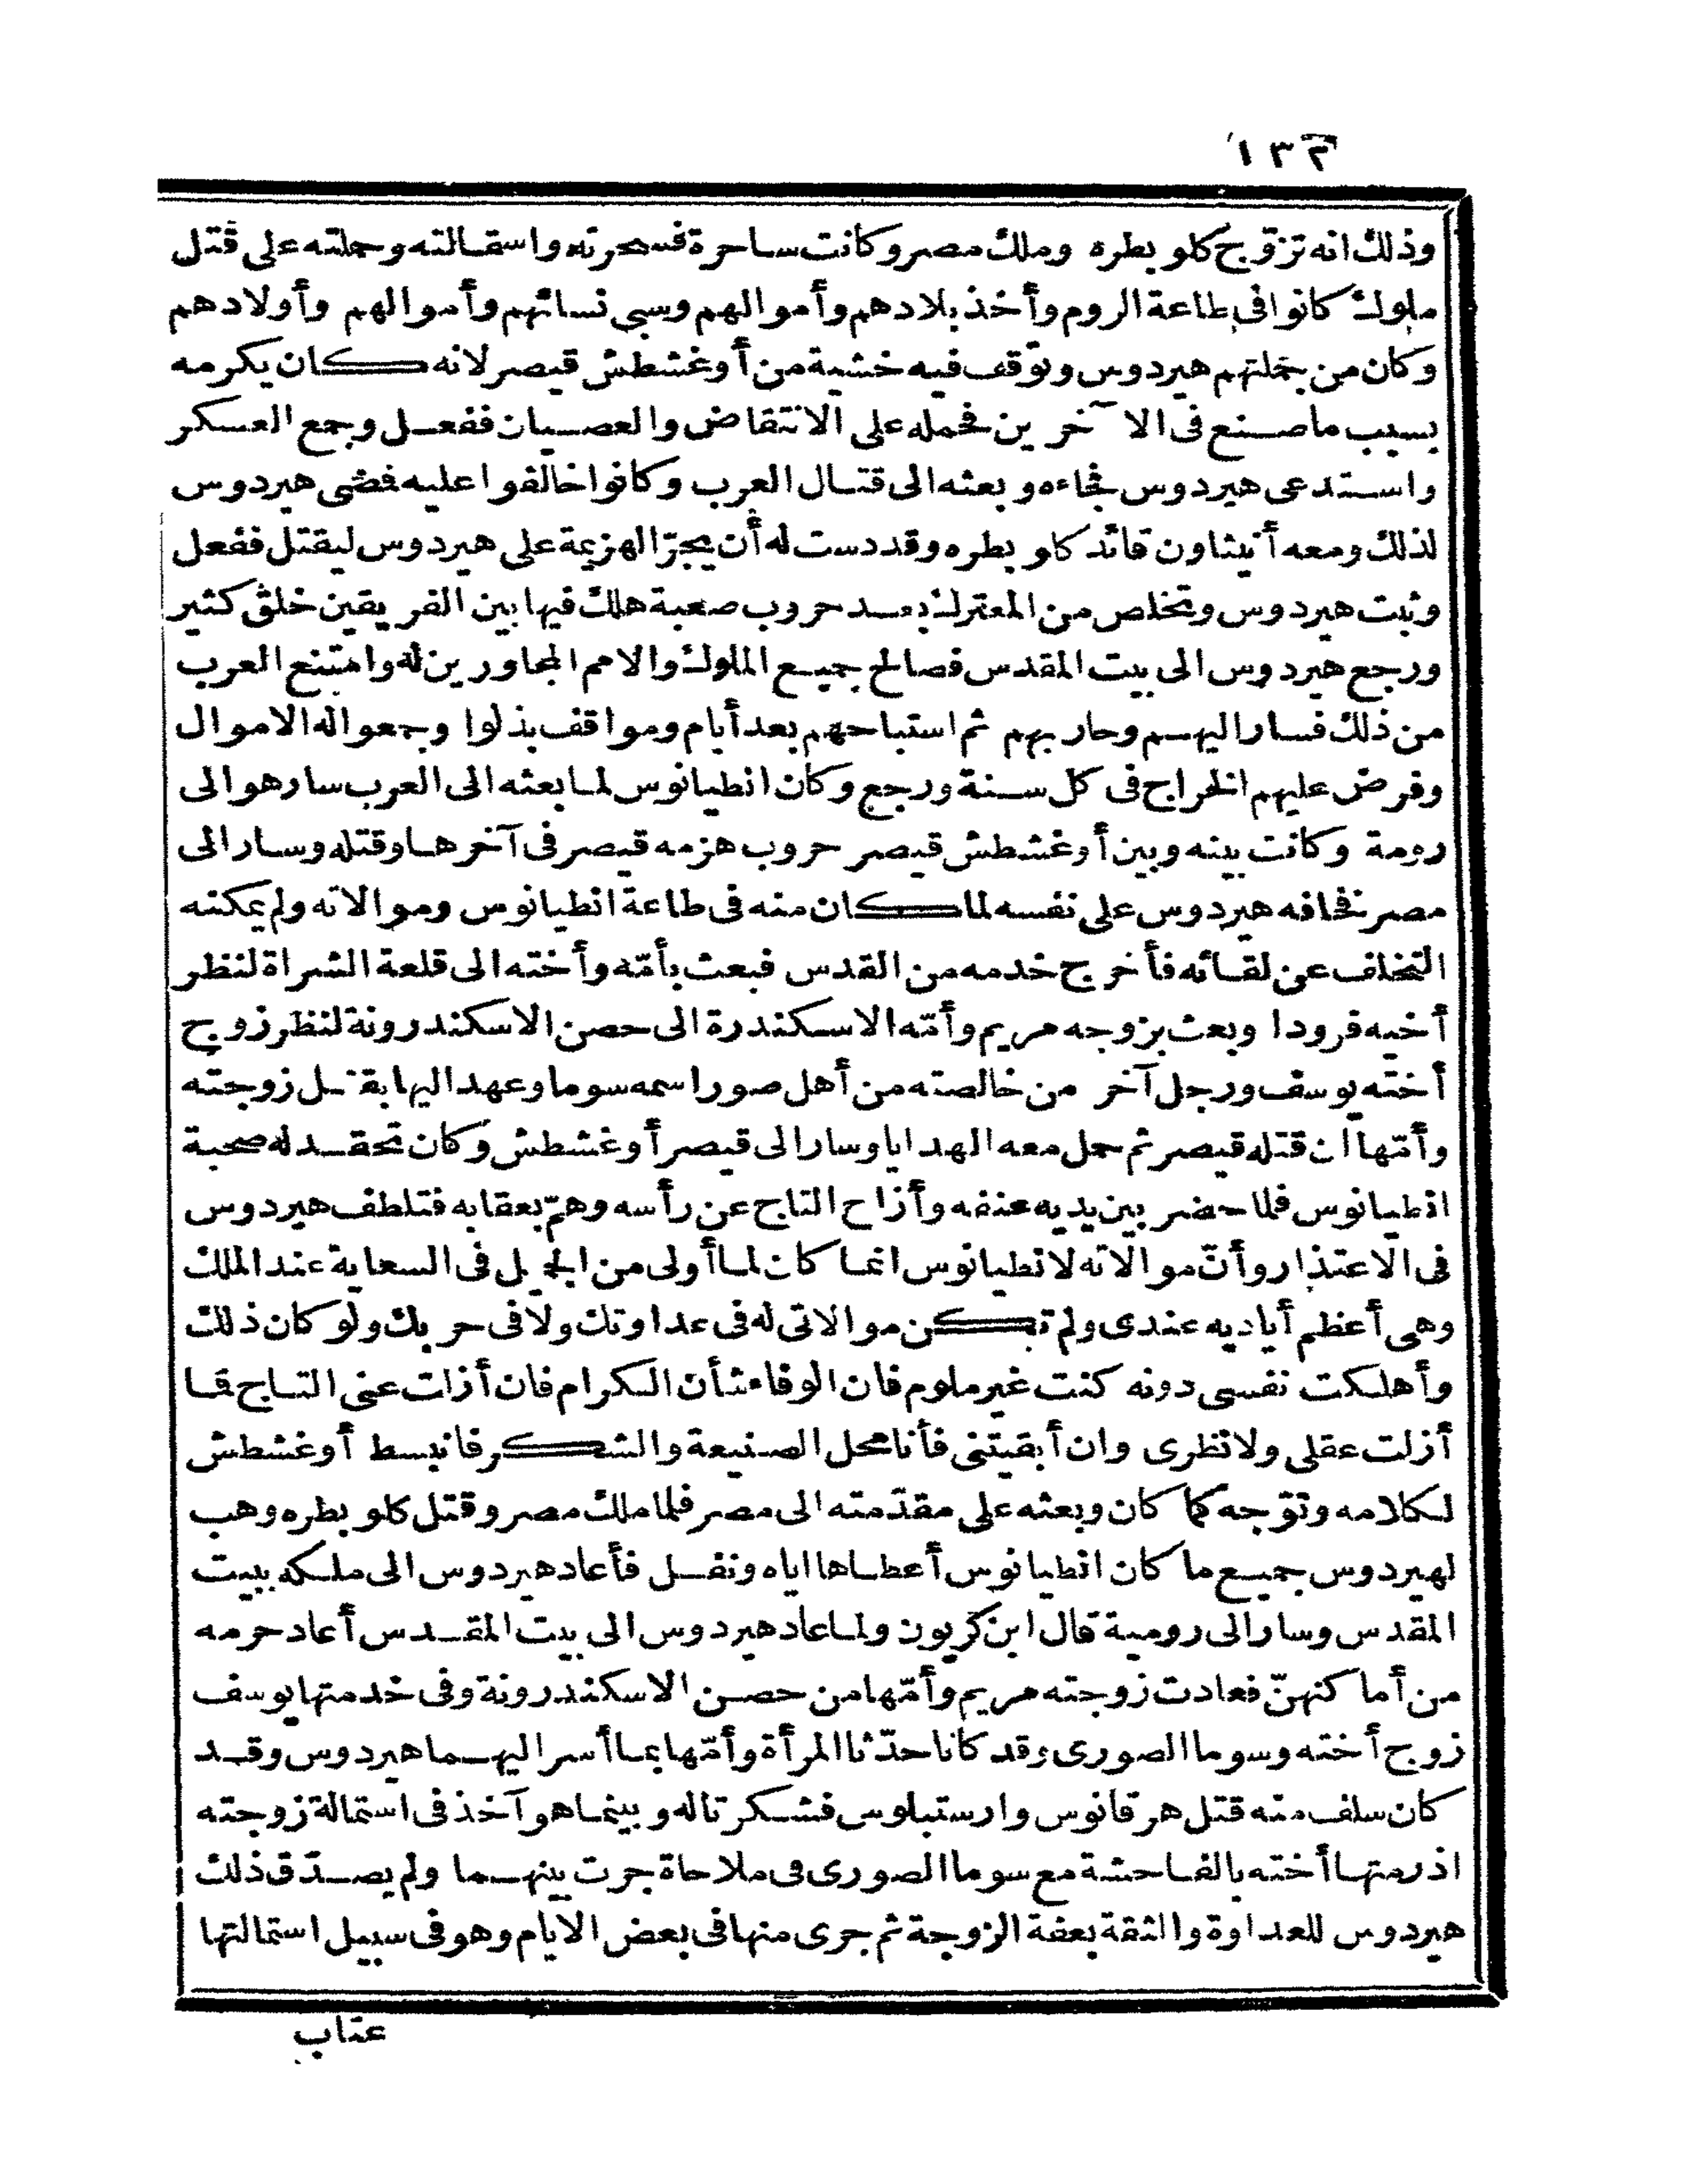 ١٣٢
وذلك انه تزوّج كلو بطره وملك مصر وكانت ساحرة فسحرته واستمالته وحملته على قتل
ملوك كانوا فى طاعة الروم وأخذ بلادهم وأموالهم وسبي نسائهم وأموالهم وأولادهم
وكان من جملتهم هيردوس وتوقف فيه خشية من أوغشطش قيصر لانه كان يكرمه
بسبب ما صنع فى الآخرين فحمله على الانتقاض والعصيان ففعل وجمع العسكر
واستدعى هيردوس فجاءه وبعثه الى قتال العرب وكانوا خالفوا عليه فمضى هيردوس
لذلك ومعه أنيثاون قائد كلو بطره وقد دست له أن يجرّ الهزيمة على هيردوس ليقتل ففعل
وثبت هيردوس وتخلص من المعترك بعد حروب صعبة هلك فيها بين الفريقين خلق كثير
ورجع هيردوس الى بيت المقدس فصالح جميع الملوك والامم المجاورين له وامتنع العرب
من ذلك فسار اليهم وحاربهم ثم استباحهم بعد أيام ومواقف بذلوا وجمعوا له الاموال
وفرض عليهم الخراج فى كل سنة ورجع وكان انطيانوس لما بعثه الى العرب سار هو الى
رومة وكانت بينه وبين أوغشطش قيصر حروب هزمه قيصر فى آخرها وقتله وسار الى
مصر نخافه هيردوس على نفسه لما كان منه فى طاعة انطيانوس وموالاته ولم يمكنه
التخلف عن لقائه فأخرج خدمه من القدس فبعث بأمّه وأخته الى قلعة الشراة لنظر
أخيه فرودا وبعث بزوجه مريم وأمّه الاسكندرة الى حصن الاسكندرونة لنظر زوج
أخته يوسف ورجل آخر من خالصته من أهل صور اسمه سوما وعهد اليها بقتل زوجته
وأمّها ان قتله قيصر ثم حمل معه الهدايا وسار الى قيصر أوغشطش وكان تحقد له صحبة
انطيانوس فلما حضر بين يديه عنفه وأزاح التاج عن رأسه وهمّ بعقابه فتلطف هيردوس
فى الاعتذار وأنّ موالاته لانطيانوس انما كان لما أولى من الجميل فى السعاية عند الملك
وهى أعظم أياديه عندى ولم تكن موالاتى له فى عداوتك ولا فى حربك ولو كان ذلك
وأهلكت نفسى دونه كنت غير ملوم فان الوفاء شأن الكرام فان أزلت عنى التاج فما
أزلت عقلى ولا نظرى وان أبقيتنى فأنا محل الصنيعة والشكر فانبسط أوغشطش
لكلامه وتوّجه كما كان وبعثه على مقدّمته الى مصر فلما ملك مصر وقتل كلو بطره وهب
لهيردوس جميع ما كان انطيانوس أعطاها اياه ونفل فأعاد هيردوس الى ملكه ببيت
المقدس وسار الى رومية قال ابن كريون ولما عاد هيردوس الى بيت المقدس أعاد حرمه
من أماكنهنّ فعادت زوجته مريم وأمّها من حصن الاسكندرونة وفى خدمتها يوسف
زوج أخته وسوما الصورى وقد كانا حدّثا المرأة وأمّها بما أسر اليهما هيردوس وقد
كان سلف منه قتل هرقانوس وارستبلوس فشكرتا له وبينما هو آخذ فى استمالة زوجته
اذ رمتها أخته بالفاحشة مع سوما الصورى فى ملاحاة جرت بينهما ولم يصدّق ذلك
هيردوس للعداوة والثقة بعفة الزوجة ثم جرى منها فى بعض الايام وهو فى سبيل استمالتها
عتاب